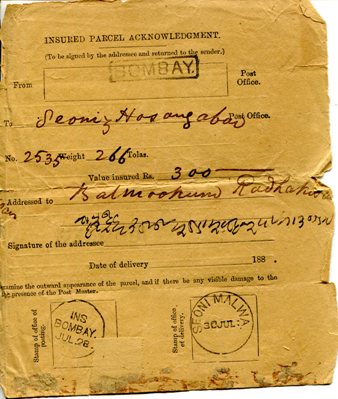 INSURED PARCEL ACKNOWLEDGMENT.
(To be signed by the addressee and returned to the sender.)
From BOMBAY. Post Office.
To Seoni Hosangabad Post Office.
No. 2535 Weight 266 Tolas.
Value insured Rs. 300
Addressed to Balmookund
Signature of the addressee
Date of delivery 188 .
amine the outward appearance of the parcel, and if there be any visible damage to the
presence of the Post Master.
Stamp of office of posting.
INS
BOMBAY.
JUL.28
Stamp of office of delivery.
SEONI MALWA
30 JUL.